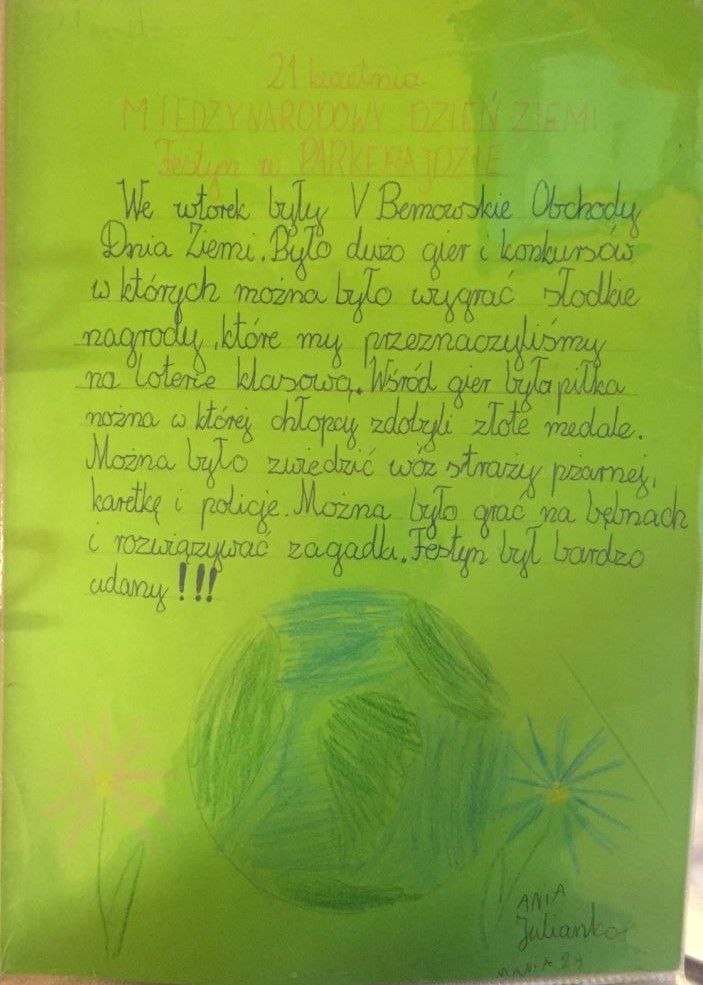 21 kwietnia
MIĘDZYNARODOWY DZIEŃ ZIEMI
Festyn w PARKERAJDZIE
We wtorek były V Bemowskie Obchody
Dnia Ziemi. Było dużo gier i konkursów
w których można było wygrać słodkie
nagrody, które my przeznaczyliśmy
na loterie klasową. Wśród gier była piłka
nożna w której chłopcy zdobyli złote medale.
Można było zwiedzić wóz straży pżarnej,
karetkę i policje. Można było grać na bębnach
i rozwiązywać zagadki. Festyn był bardzo
udany !!!
ANIA
Julianka